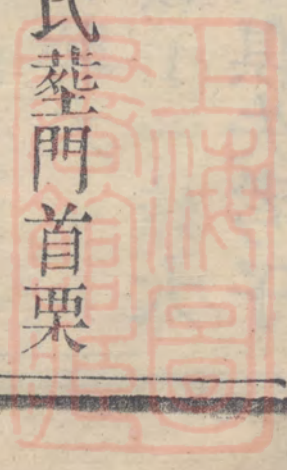 氏塟門首栗
上海圖
書館藏